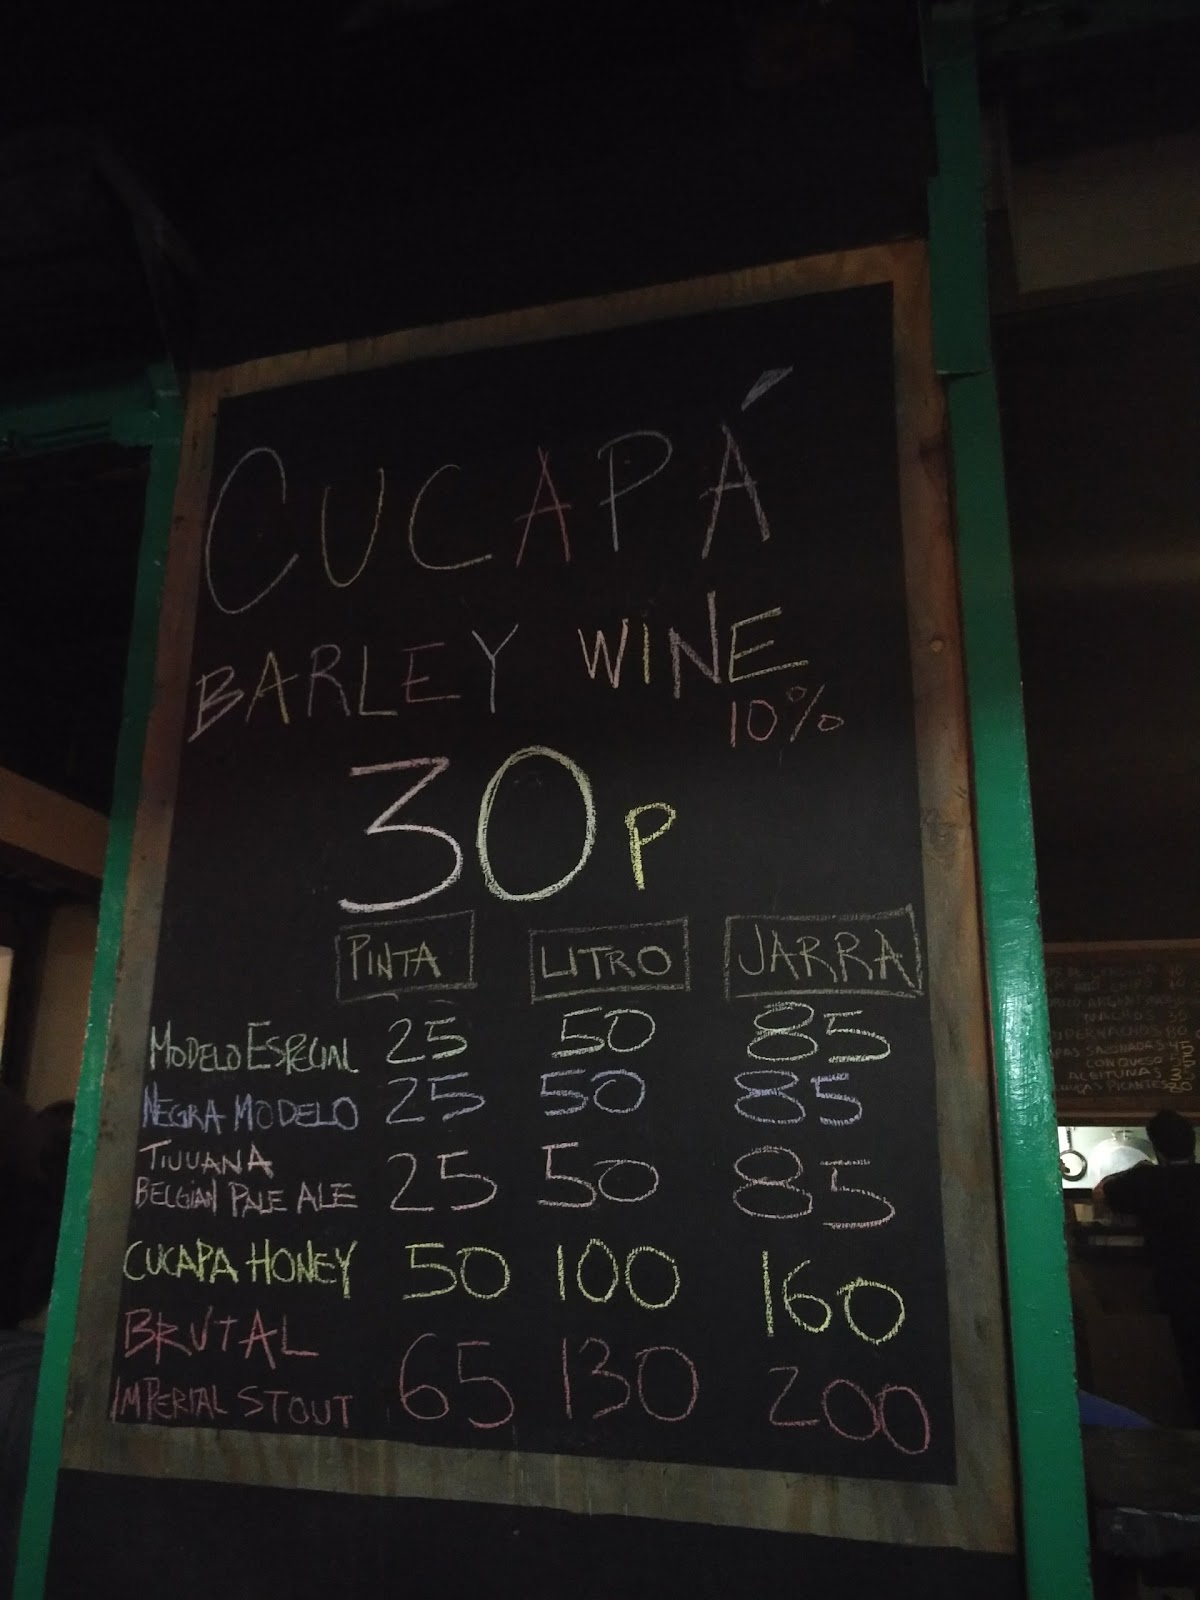 CUCAPÁ
BARLEY WINE
10%
30P
PINTA LITRO JARRA
MODELO ESPECIAL 25 50 85
NEGRA MODELO 25 50 85
TIJUANA
BELGIAN PALE ALE 25 50 85
CUCAPA HONEY 50 100 160
BRUTAL
IMPERIAL STOUT 65 130 200
NACHOS
CON QUESO
ACEITUNAS
PICANTES